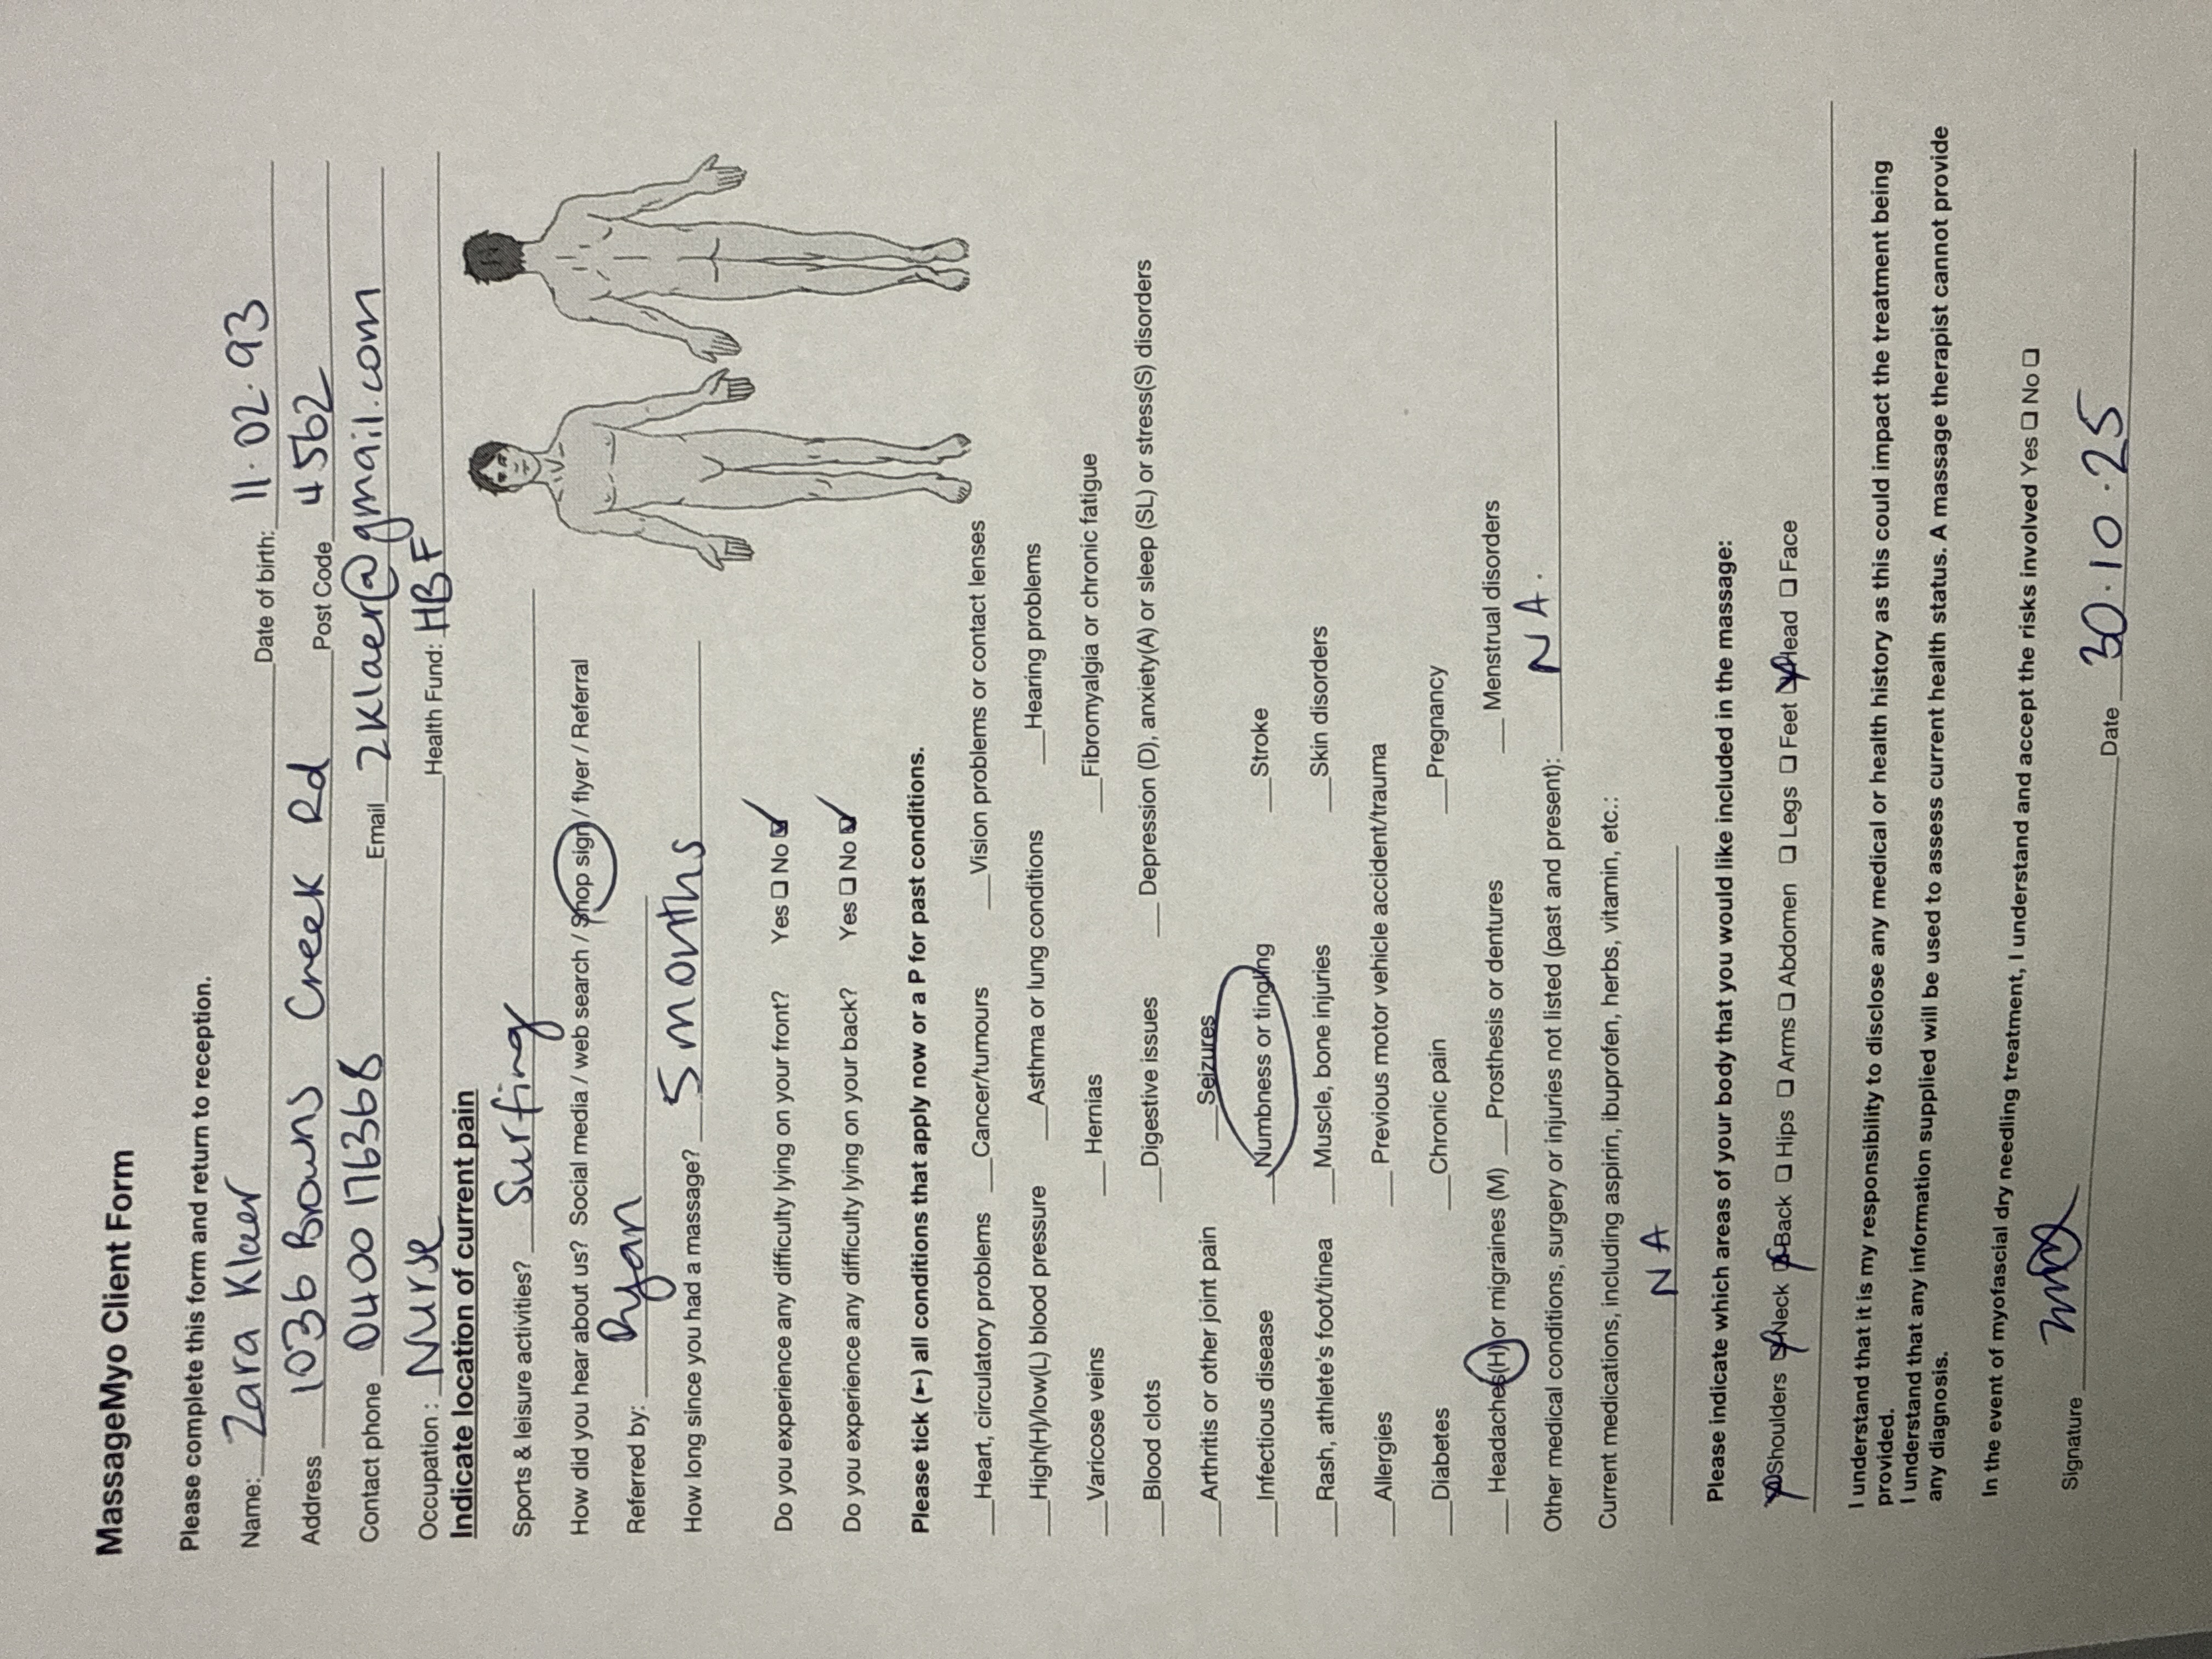 MassageMyo Client Form
Please complete this form and return to reception.
Name: Zara Klaer Date of birth: 11.02.93
Address 1036 Browns Creek Rd Post Code 4562
Contact phone 0400 176368 Email zklaer@gmail.com
Occupation : Nurse Health Fund: HBF
Indicate location of current pain
Sports & leisure activities? Surfing
How did you hear about us? Social media / web search / Shop sign / flyer / Referral
Referred by: Ryan
How long since you had a massage? 5 months
Do you experience any difficulty lying on your front? Yes ☐ No ☑
Do you experience any difficulty lying on your back? Yes ☐ No ☑
Please tick (➳) all conditions that apply now or a P for past conditions.
__Heart, circulatory problems __Cancer/tumours __Vision problems or contact lenses
__High(H)/low(L) blood pressure __Asthma or lung conditions __Hearing problems
__Varicose veins __Hernias __Fibromyalgia or chronic fatigue
__Blood clots __Digestive issues __Depression (D), anxiety(A) or sleep (SL) or stress(S) disorders
__Arthritis or other joint pain __Seizures
__Infectious disease __Numbness or tingling __Stroke
__Rash, athlete's foot/tinea __Muscle, bone injuries __Skin disorders
__Allergies __Previous motor vehicle accident/trauma
__Diabetes __Chronic pain __Pregnancy
__Headaches(H) or migraines (M) __Prosthesis or dentures __Menstrual disorders
Other medical conditions, surgery or injuries not listed (past and present): NA.
Current medications, including aspirin, ibuprofen, herbs, vitamin, etc.:
NA
Please indicate which areas of your body that you would like included in the massage:
☑Shoulders ☑Neck ☑Back ☐ Hips ☐ Arms ☐ Abdomen ☐ Legs ☐ Feet ☑Head ☐ Face
I understand that it is my responsibility to disclose any medical or health history as this could impact the treatment being
provided.
I understand that any information supplied will be used to assess current health status. A massage therapist cannot provide
any diagnosis.
In the event of myofascial dry needling treatment, I understand and accept the risks involved Yes ☐ No ☐
Signature Date 30.10.25